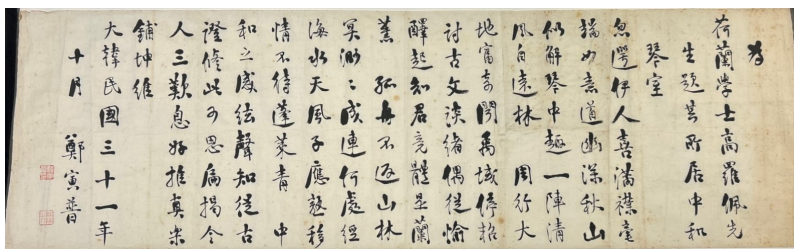 為
荷蘭學士高羅佩先
生題其所居中和
琴室
忽遌伊人喜滿襟毫
端妙意道幽深秋山
似解琴中趣一陣清
風自遠林 周行大
地富奇聞禹域停軺
討古文談緒偶從愉
醳起知君竟體是蘭
薰 孤舟不返山林
冥渺〻成連何處經
海水天風子應移
情不待蓬萊青 中
和之感絃聲知從古
證脩此可思扁揭今
人三歎息好推真樂
鋪坤維
大韓民國三十一年
十月 鄭寅普